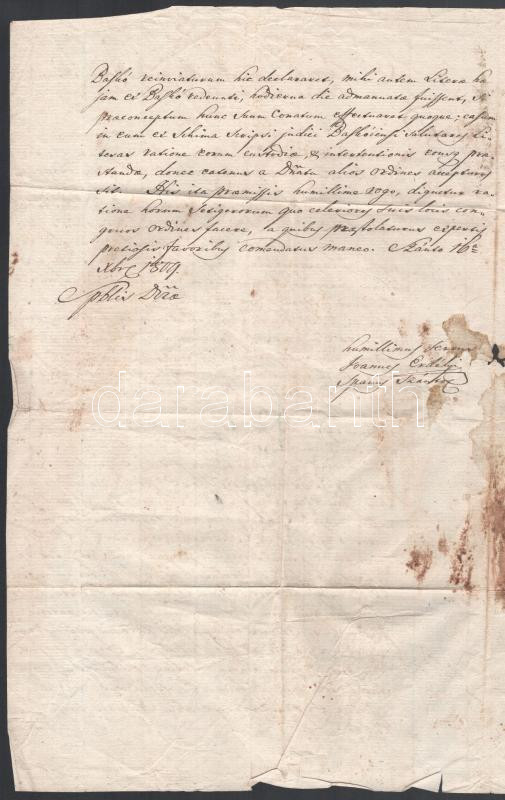 Baskó reinviaturum hic declararet, mihi autem Litera ha
jam ex Baskó redeunti, hodierna die admanuata fuissent, si
praeconceptum hunc suum Conatum effectuaret quoque; casum
in eum ex Schima Scripsi judici Baskóiensi Salutares Li
teras ratione eorum custodiæ, & intertentionis
standæ, donec eatenus a Dnātu alios ordines accepturus
sit. His ita præmissis humillime rogo, dignetur ra
tione horum Setigerorum quo celeriores suis locis con,
gruos ordines facere, a quibus præstolaturus expertis
pretiosis favoribus comendatus maneo. Szánto 16ª
Xbris 1809.
Spblis Dnæ
humillimus servus
Joannes Erdélyi
darabanth